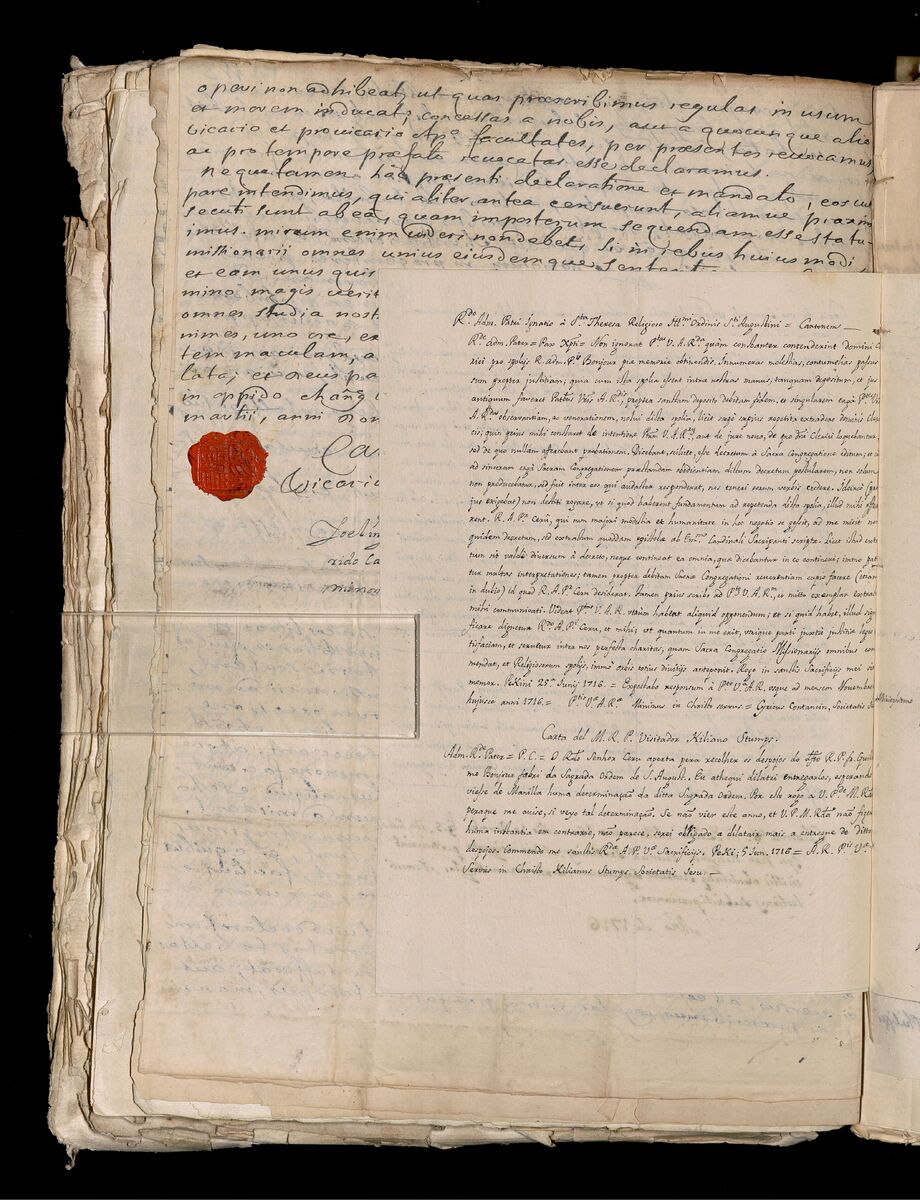 operi non adhibeat, ut quas præscribimus regulas in usum
et morem inducat; concessas a nobis, aut a quocunque alio
vicario et provicario Apo. facultates, per præsentes revocamus
ac pro tempore præfato revocatas esse declaramus.
Neque tamen hac præsenti declaratione et mandato, eos cul
pare intendimus, qui aliter antea censuerunt, aliamve praxim
secuti sunt ab ea, quam imposterum sequendam esse statu-
imus. mirum enim videri non debet, si in rebus huius modi
missionarii omnes unius eiusdemque sententi
et eam unus quis
mino magis verit
omnes studia nost
nimes, uno ore, ex
tem maculam, a
lata; et Deus pa
in oppido chang
martii, anni Dom
Ca
Vicario
Joel in
rido Ca
minor
Rdo Adm. Patri Ignatio à Sta Theresa Religioso Illmi Ordinis Sti Augustini = Cantonem —
Rde adm. Pater = Pax Xpi = Non ignorat Ptas V. A. Rda quàm constanter contenderint Domini C
rici pro spolijs R. adm. Ps Bonjour piæ memoriæ obtinendis. Innumeras molestias, contumelias passus
sum propter justitiam; quia cum ista spolia essent intra nostras manus, tanquam depositum, et jus
antiquum faveret Patribus Vris A. Rdis, propter sanctam depositi debitam fidem, et singularem ergà Ptes V
A. Rdas observantiam, ac venerationem, nolui dicta spolia, licet sæpè sæpius repetita extradere dominis Cle
cis; quin prius mihi constaret de intentione Ptum V. A. Rdarum, aut de jure novo, de quo Dni Clerici loquebantur;
sed de quo nullam afferebant probationem. Dicebant, scilicet, esse decretum à Sacra Congregatione editum; et c
ad sinceram ergà Sacram Congregationem præstandam obedientiam dictum decretum postularem, non solum
non producebatur, sed fuit inter eos qui audacter responderet, nos teneri eorum verbis credere. Idcircò (pro
jus exigebat) non destiti rogare, ut si quod haberent fundamentum ad repetenda dicta spolia, illud mihi offe
rent. R. A. Ps Ceru, qui cum majori modestia et humanitate in hoc negotio se gessit, ad me misit non
quidem decretum, sed extractum cujusdam epistolæ ab Emmo Cardinali Sacripanti scriptæ. Licet illud extr
tum sit valdè diversum à decreto, neque contineat ea omnia, quæ dicebantur in eo contineri; immo pat
tur multas interpretationes; tamen propter debitam Sacræ Congregationi reverentiam cupio facere (etiam
in dubio) id quod R. A. Ps Ceru desiderat. Attamen prius scribo ad Ptem V. A. Rm, et mitto exemplar extracti
mihi communicati. Videat Ptas V. A. R. utrùm habeat aliquid opponendum; et si quid habet, illud sig
ficare dignetur Rdo A. Pi Ceru, et mihi; ut quantum in me erit, utrique parti juxta justitiæ leges
tisfaciam, et servetur inter nos perfecta charitas, quam Sacra Congregatio Missionarijs omnibus com
mendat, et Religiosorum spolijs, immò orbis totius divitijs anteponit. Rogo in sanctis Sacrificijs mei si
memor. Pekini 25a Junij 1716. = Expectabo responsum à Pte V. A. R. usque ad mensem Novembrem
hujusce anni 1716. = Ptis Væ A. Ræ Minimus in Christo servus = Cyricus Contancin, Societatis Je
Carta del M. R. P. Visitador Kiliano Stumps.
Adm. Rde Pater = P. C. = O Rdo Senhor Ceru aperta pera recolher os despojos do dto R. P. fr. Guill
me Bonjour fabri da Sagrada Ordem de S. August. Eu athequi dilatei entregarlos, esperando
viesse de Manilla huma determinação da ditta Sagrada Ordem. Por isso rogo a V. Pde M. Rda
peraque me avise, si veyo tal determinação. Se não vier este anno, et V. P. M. Rda não fizer
huma instantia em contrario, não parece, serei obligado a dilatair mais a entregue de Ditto
despojos. Commendo me sanctis Rdæ A. P. Væ Sacrificijs. Peki; 5 Jun. 1716 = A. R. Ptis Væ
Servus in Christo Kilianus Stumps Societatis Jesu. —